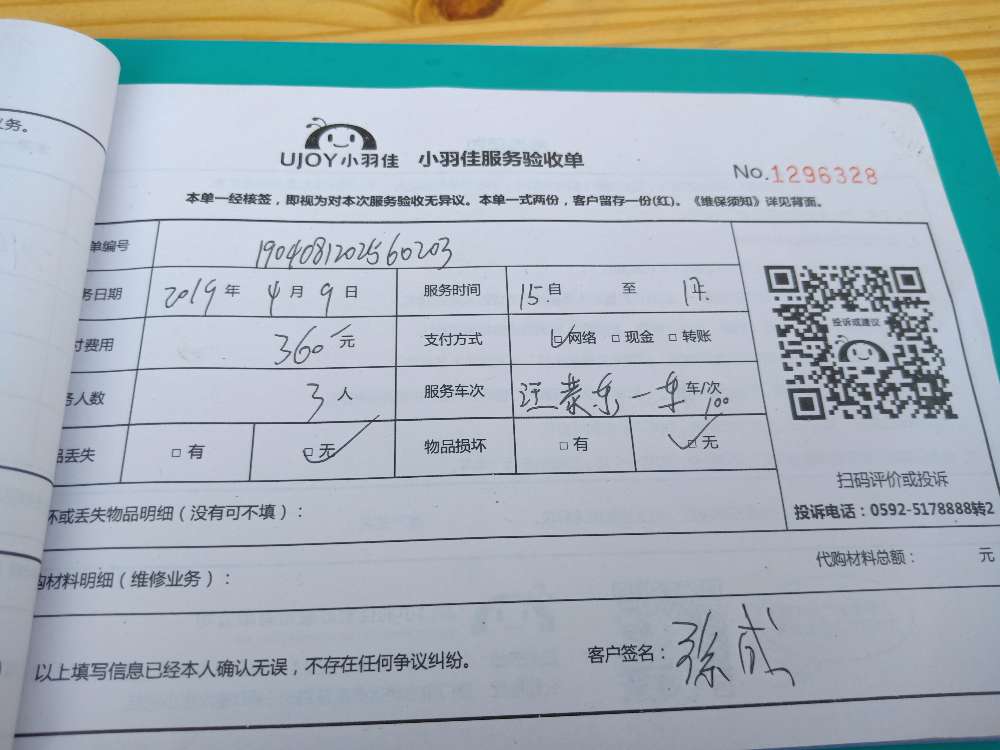 务。
UJOY小羽佳 小羽佳服务验收单
No.1296328
本单一经核签，即视为对本次服务验收无异议。本单一式两份，客户留存一份(红)。《维保须知》详见背面。
单编号 1904081202560203
务日期 2019年 4月 9日 服务时间 15自 至 17.
付费用 360元 支付方式 □网络 □现金 □转账
务人数 3人 服务车次 一车 车/次 100
品丢失 □有 □无 物品损坏 □有 □无
投诉或建议
扫码评价或投诉
投诉电话：0592-5178888转2
坏或丢失物品明细（没有可不填）：
购材料明细（维修业务）： 代购材料总额： 元
以上填写信息已经本人确认无误，不存在任何争议纠纷。 客户签名：张成